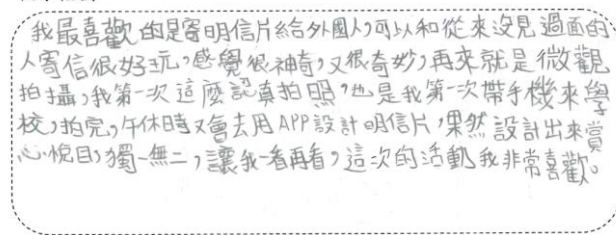 我最喜歡的是寄明信片給外國人,可以和從來沒見過面的
人寄信很好玩,感覺很神奇,又很奇妙,再來就是微觀
拍攝,我第一次這麼認真拍照,也是我第一次帶手機來學
校,拍完,午休時又會去用APP設計明信片,果然設計出來賞
心悅目,獨一無二,讓我一看再看,這次的活動我非常喜歡。